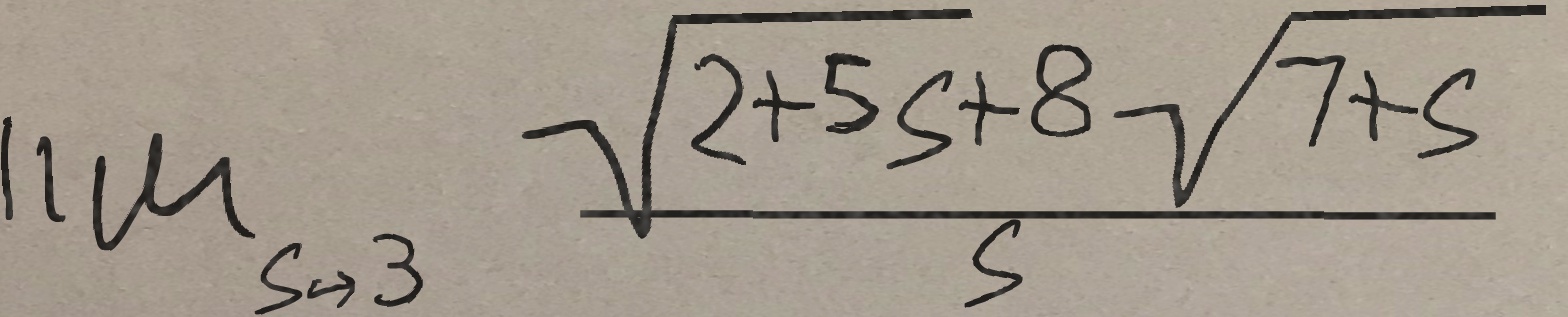 \lim_{s \to 3} \frac{\sqrt{2+5s}+8\sqrt{7+s}}{s}